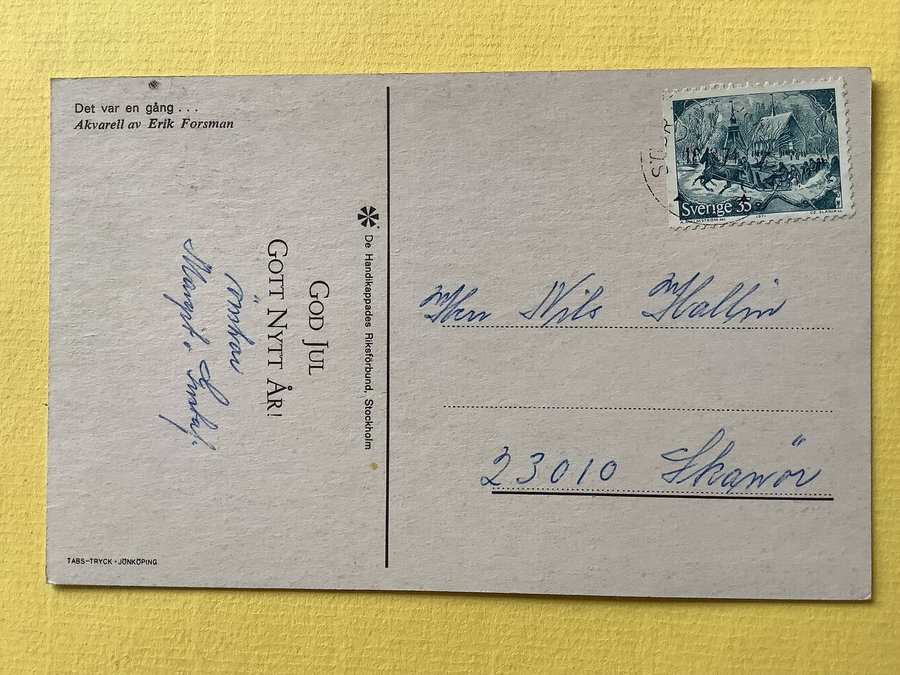 Det var en gång...
Akvarell av Erik Forsman
GOD JUL
GOTT NYTT ÅR!
önskar
Margit o Gustaf.
De Handikappades Riksförbund, Stockholm
TABS-TRYCK · JÖNKÖPING
Sverige 35
1971
CZ. SLANIA
Herr Nils Hallin
23010 Skanör